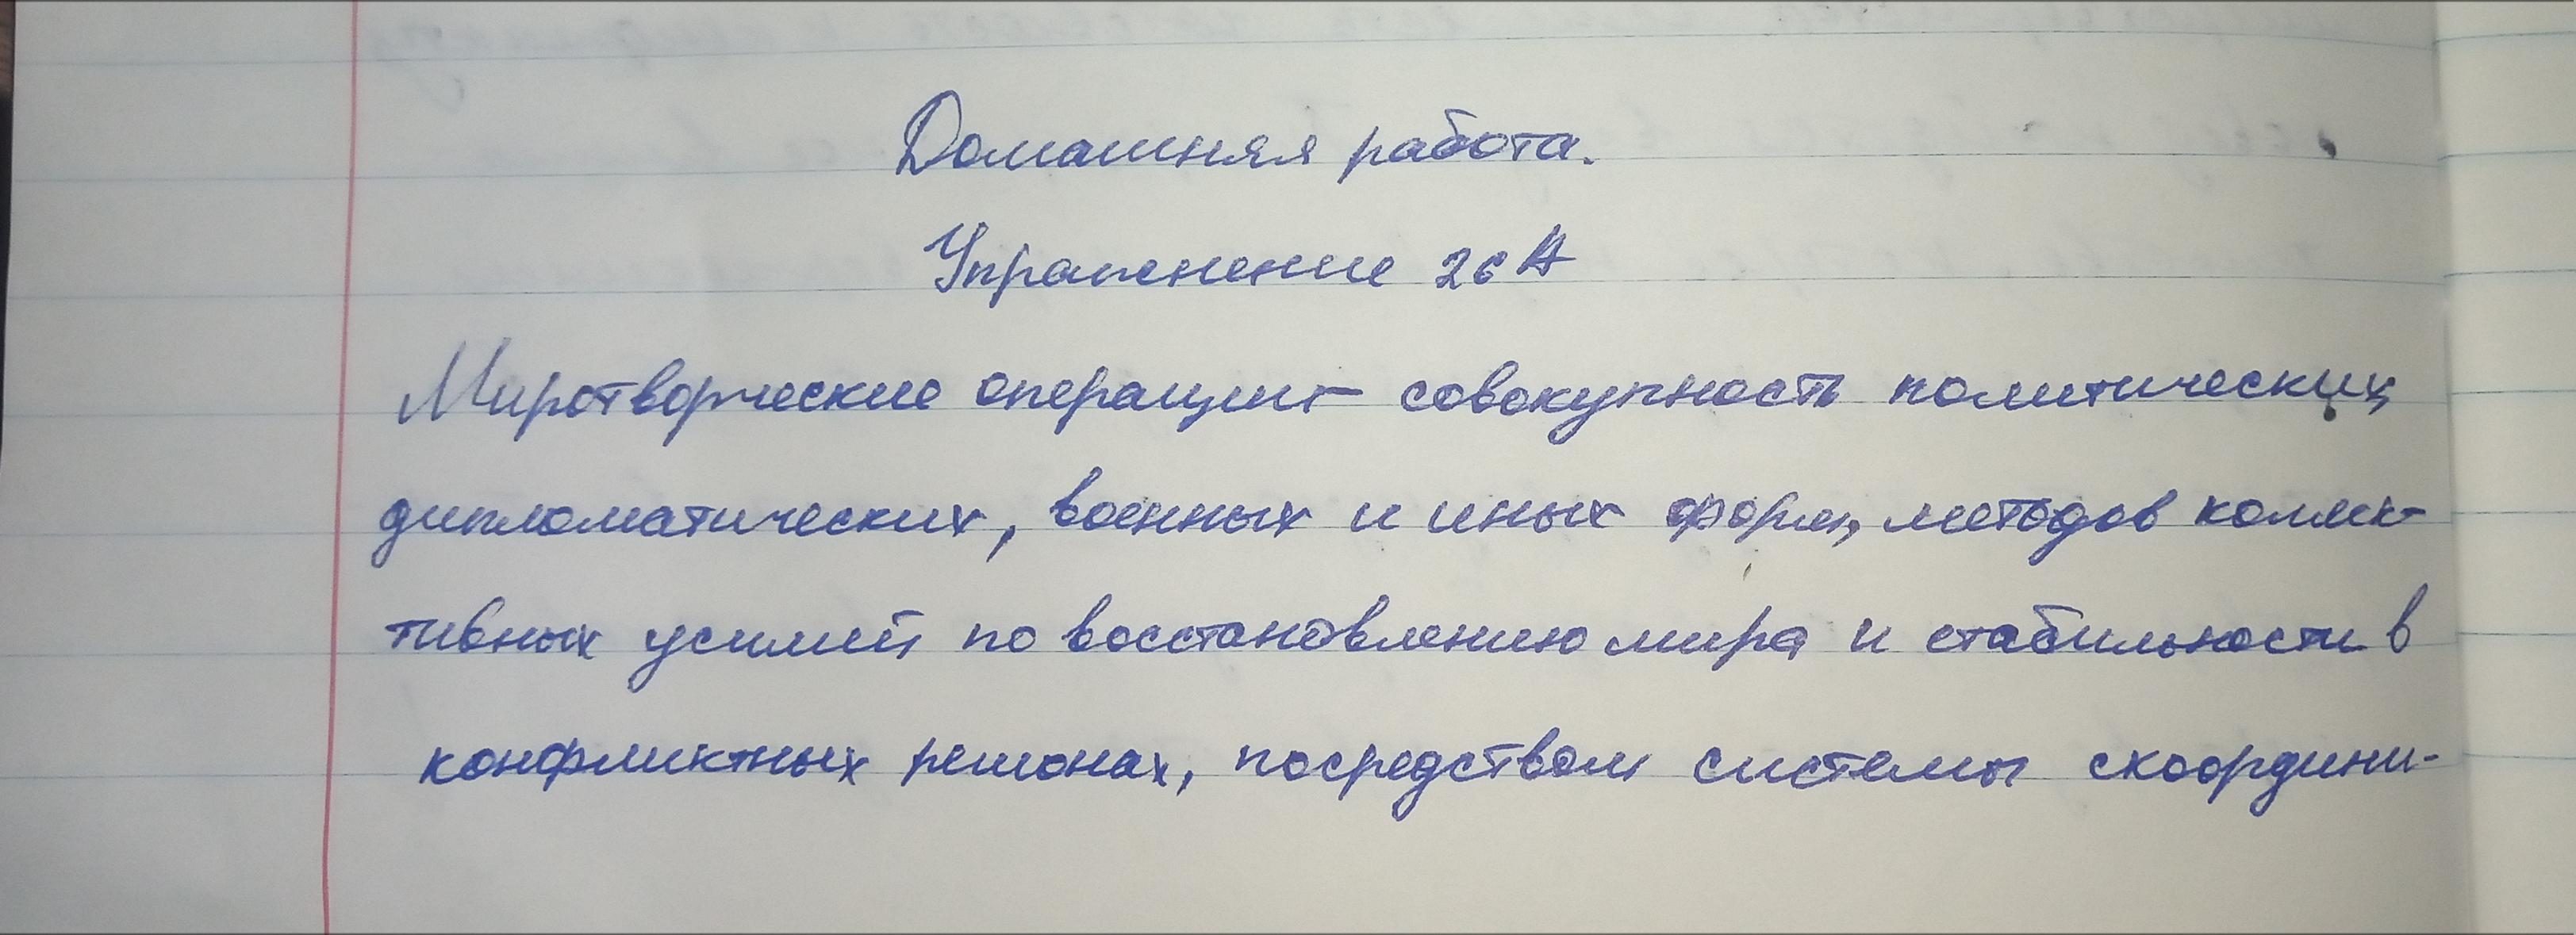 Домашняя работа.
Упражнение 26 А
Миротворческие операции - совокупность политических,
дипломатических, военных и иных форм, методов коллек-
тивных усилий по восстановлению мира и стабильности в
конфликтных регионах, посредством системы скоордини-